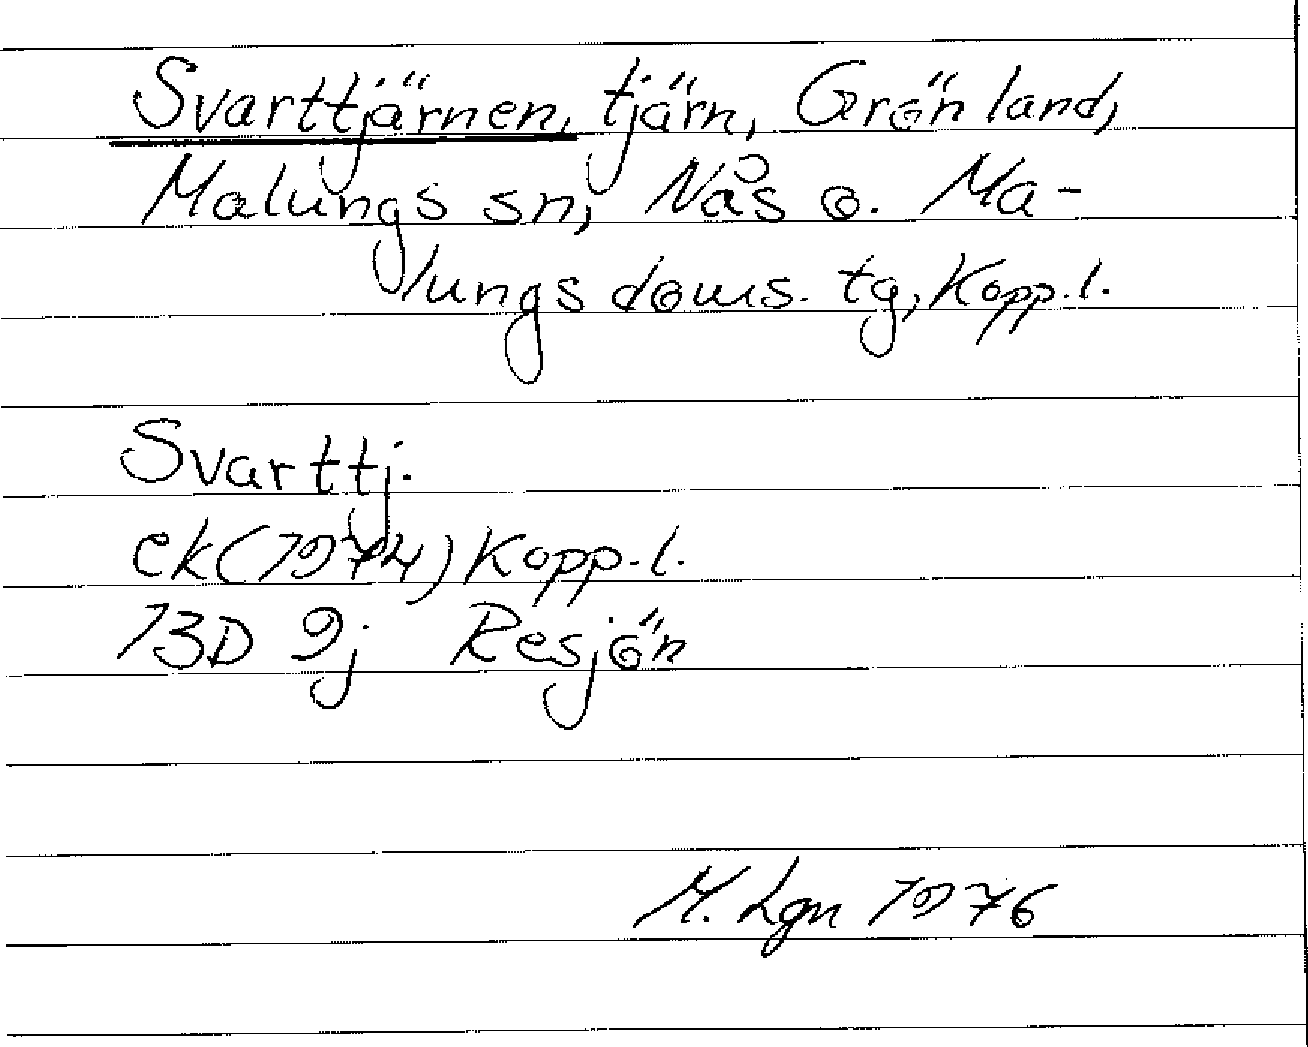 Svarttjärnen, tjärn, Grönland,
Malungs sn, Nås o. Ma-
lungs doms. tg, Kopp. l.
Svarttj.
ek (1974) Kopp. l.
13D 9j Resjön
M. Lgn 1976